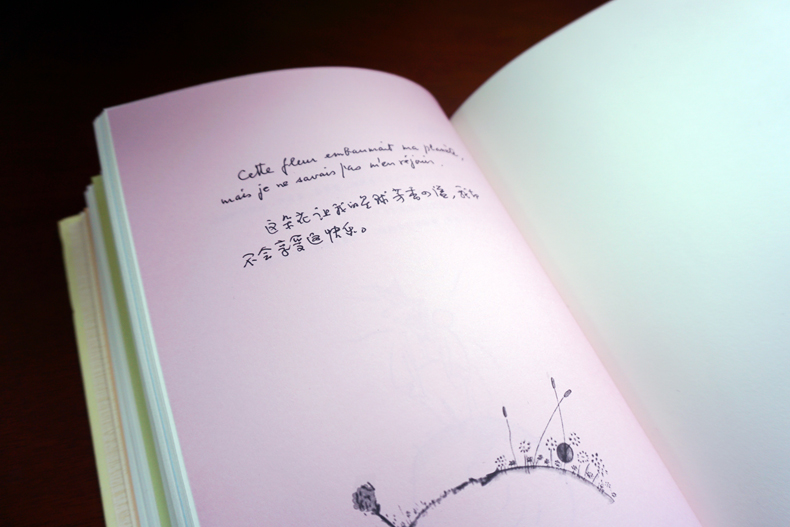 Cette fleur embaumait ma planète,
mais je ne savais pas m'en réjouir.
这朵花让我的星球芳香四溢，我却
不会享受这快乐。